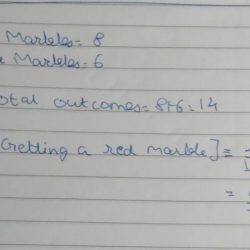 Marbles = 8
Marbles = 6
otal outcomes = 8+6 = 14
Getting a red marble] =
=